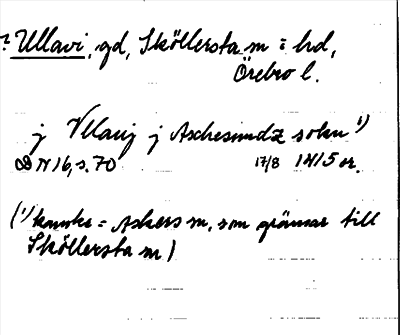 ? Ullavi, gd, Sköllersta sn o hd,
Örebro l.
j Vllavij j Aschesundz sokn ¹)
OB N 16, s. 70 17/8 1415 or.
(¹) kanske = Askers sn, som gränsar till
Sköllersta sn)